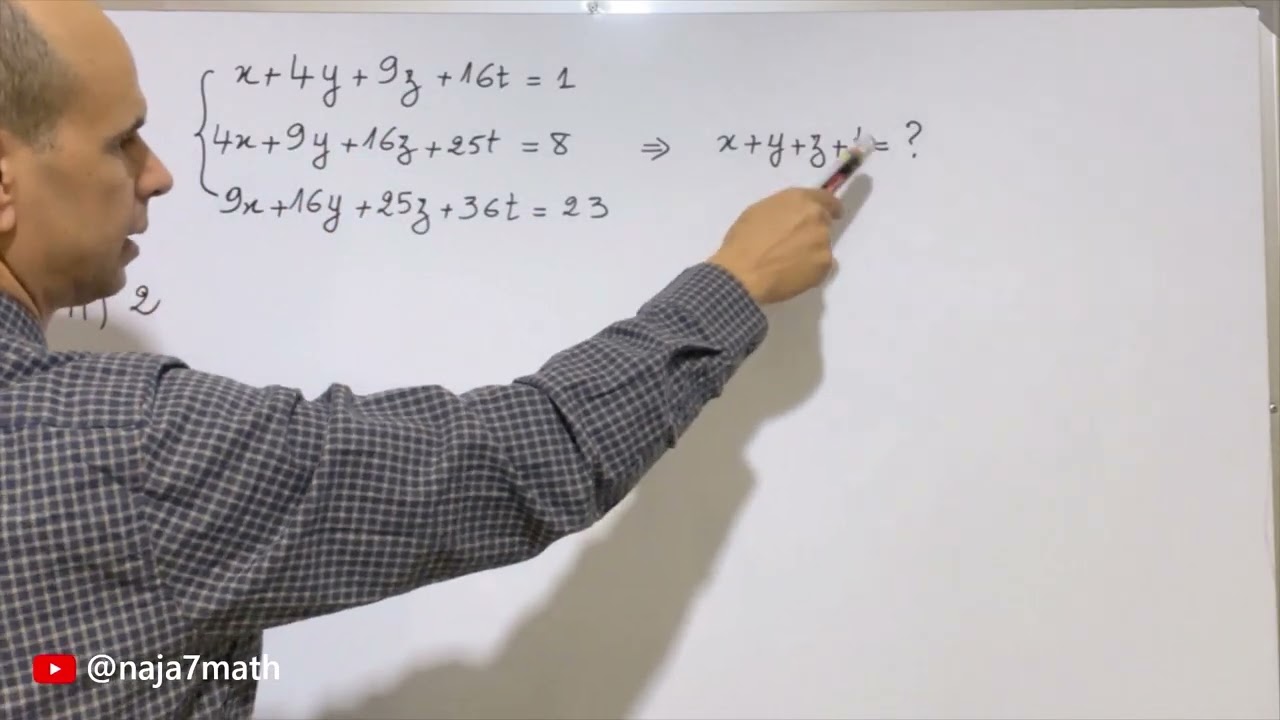 x+4y+9z+16t=1
4x+9y+16z+25t=8 ⇒ x+y+z+t=?
9x+16y+25z+36t=23
) 2
@naja7math